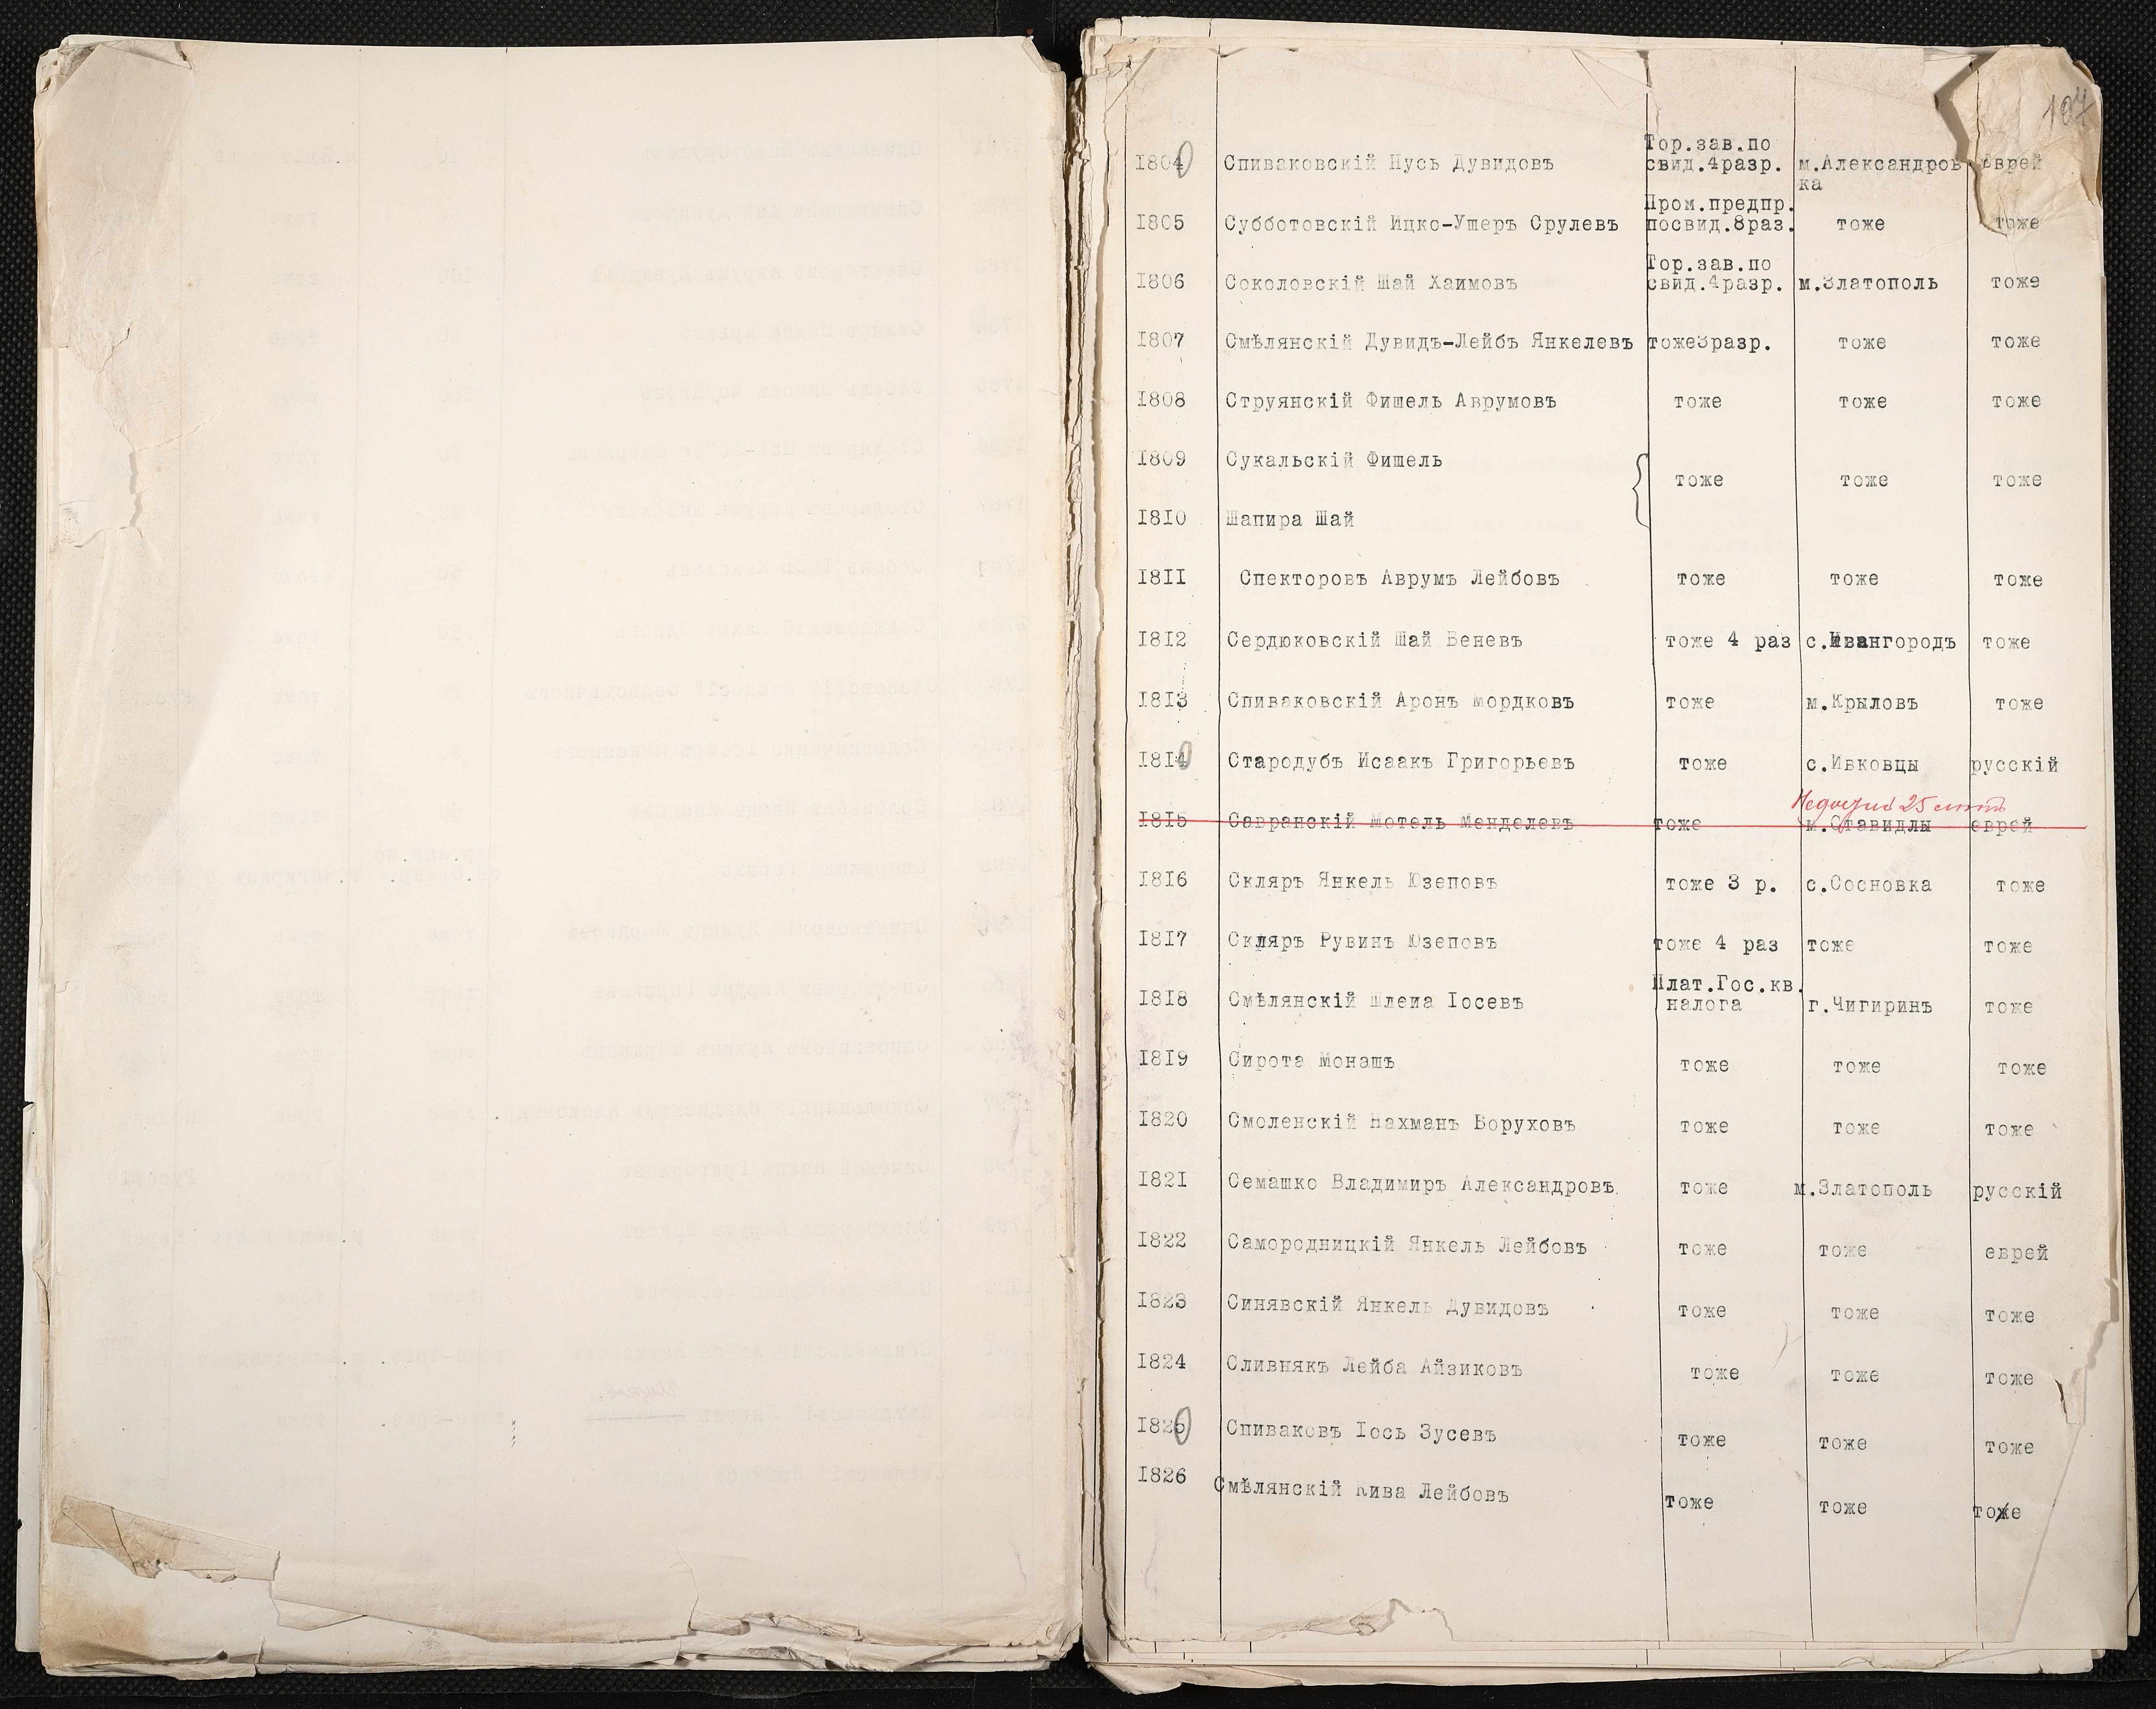 107
1804 Спиваковскій Нусь Дувидовъ Тор.зав.по свид.4разр. м.Александровка еврей
1805 Субботовскій Ицко-Ушеръ Срулевъ Пром.предпр. посвид.8раз. тоже тоже
1806 Соколовскій Шай Хаимовъ Тор.зав.по свид.4разр. м.Златополь тоже
1807 Смѣлянскій Дувидъ-Лейбъ Янкелевъ тоже3разр. тоже тоже
1808 Струянскій Фишель Аврумовъ тоже тоже тоже
1809 Сукальскій Фишель
тоже тоже тоже
1810 Шапира Шай
1811 Спекторовъ Аврумъ Лейбовъ тоже тоже тоже
1812 Сердюковскій Шай Беневъ тоже 4 раз с.Ивангородъ тоже
1813 Спиваковскій Аронъ Мордковъ тоже м.Крыловъ тоже
1814 Стародубъ Исаакъ Григорьевъ тоже с.Ивковцы русскій
25 лѣтъ
1815 Савранскій Мотель Менделевъ тоже м.Ставидлы еврей
1816 Скляръ Янкель Юзеповъ тоже 3 р. с.Сосновка тоже
1817 Скляръ Рувинъ Юзеповъ тоже 4 раз тоже тоже
1818 Смѣлянскій Шлема Іосевъ Плат.Гос.кв. налога г.Чигиринъ тоже
1819 Сирота Монашъ тоже тоже тоже
1820 Смоленскій Нахманъ Боруховъ тоже тоже тоже
1821 Семашко Владимиръ Александровъ тоже м.Златополь русскій
1822 Самородницкій Янкель Лейбовъ тоже тоже еврей
1823 Синявскій Янкель Дувидовъ тоже тоже тоже
1824 Сливнякъ Лейба Айзиковъ тоже тоже тоже
1825 Спиваковъ Іось Зусевъ тоже тоже тоже
1826 Смѣлянскій Кива Лейбовъ тоже тоже тоже